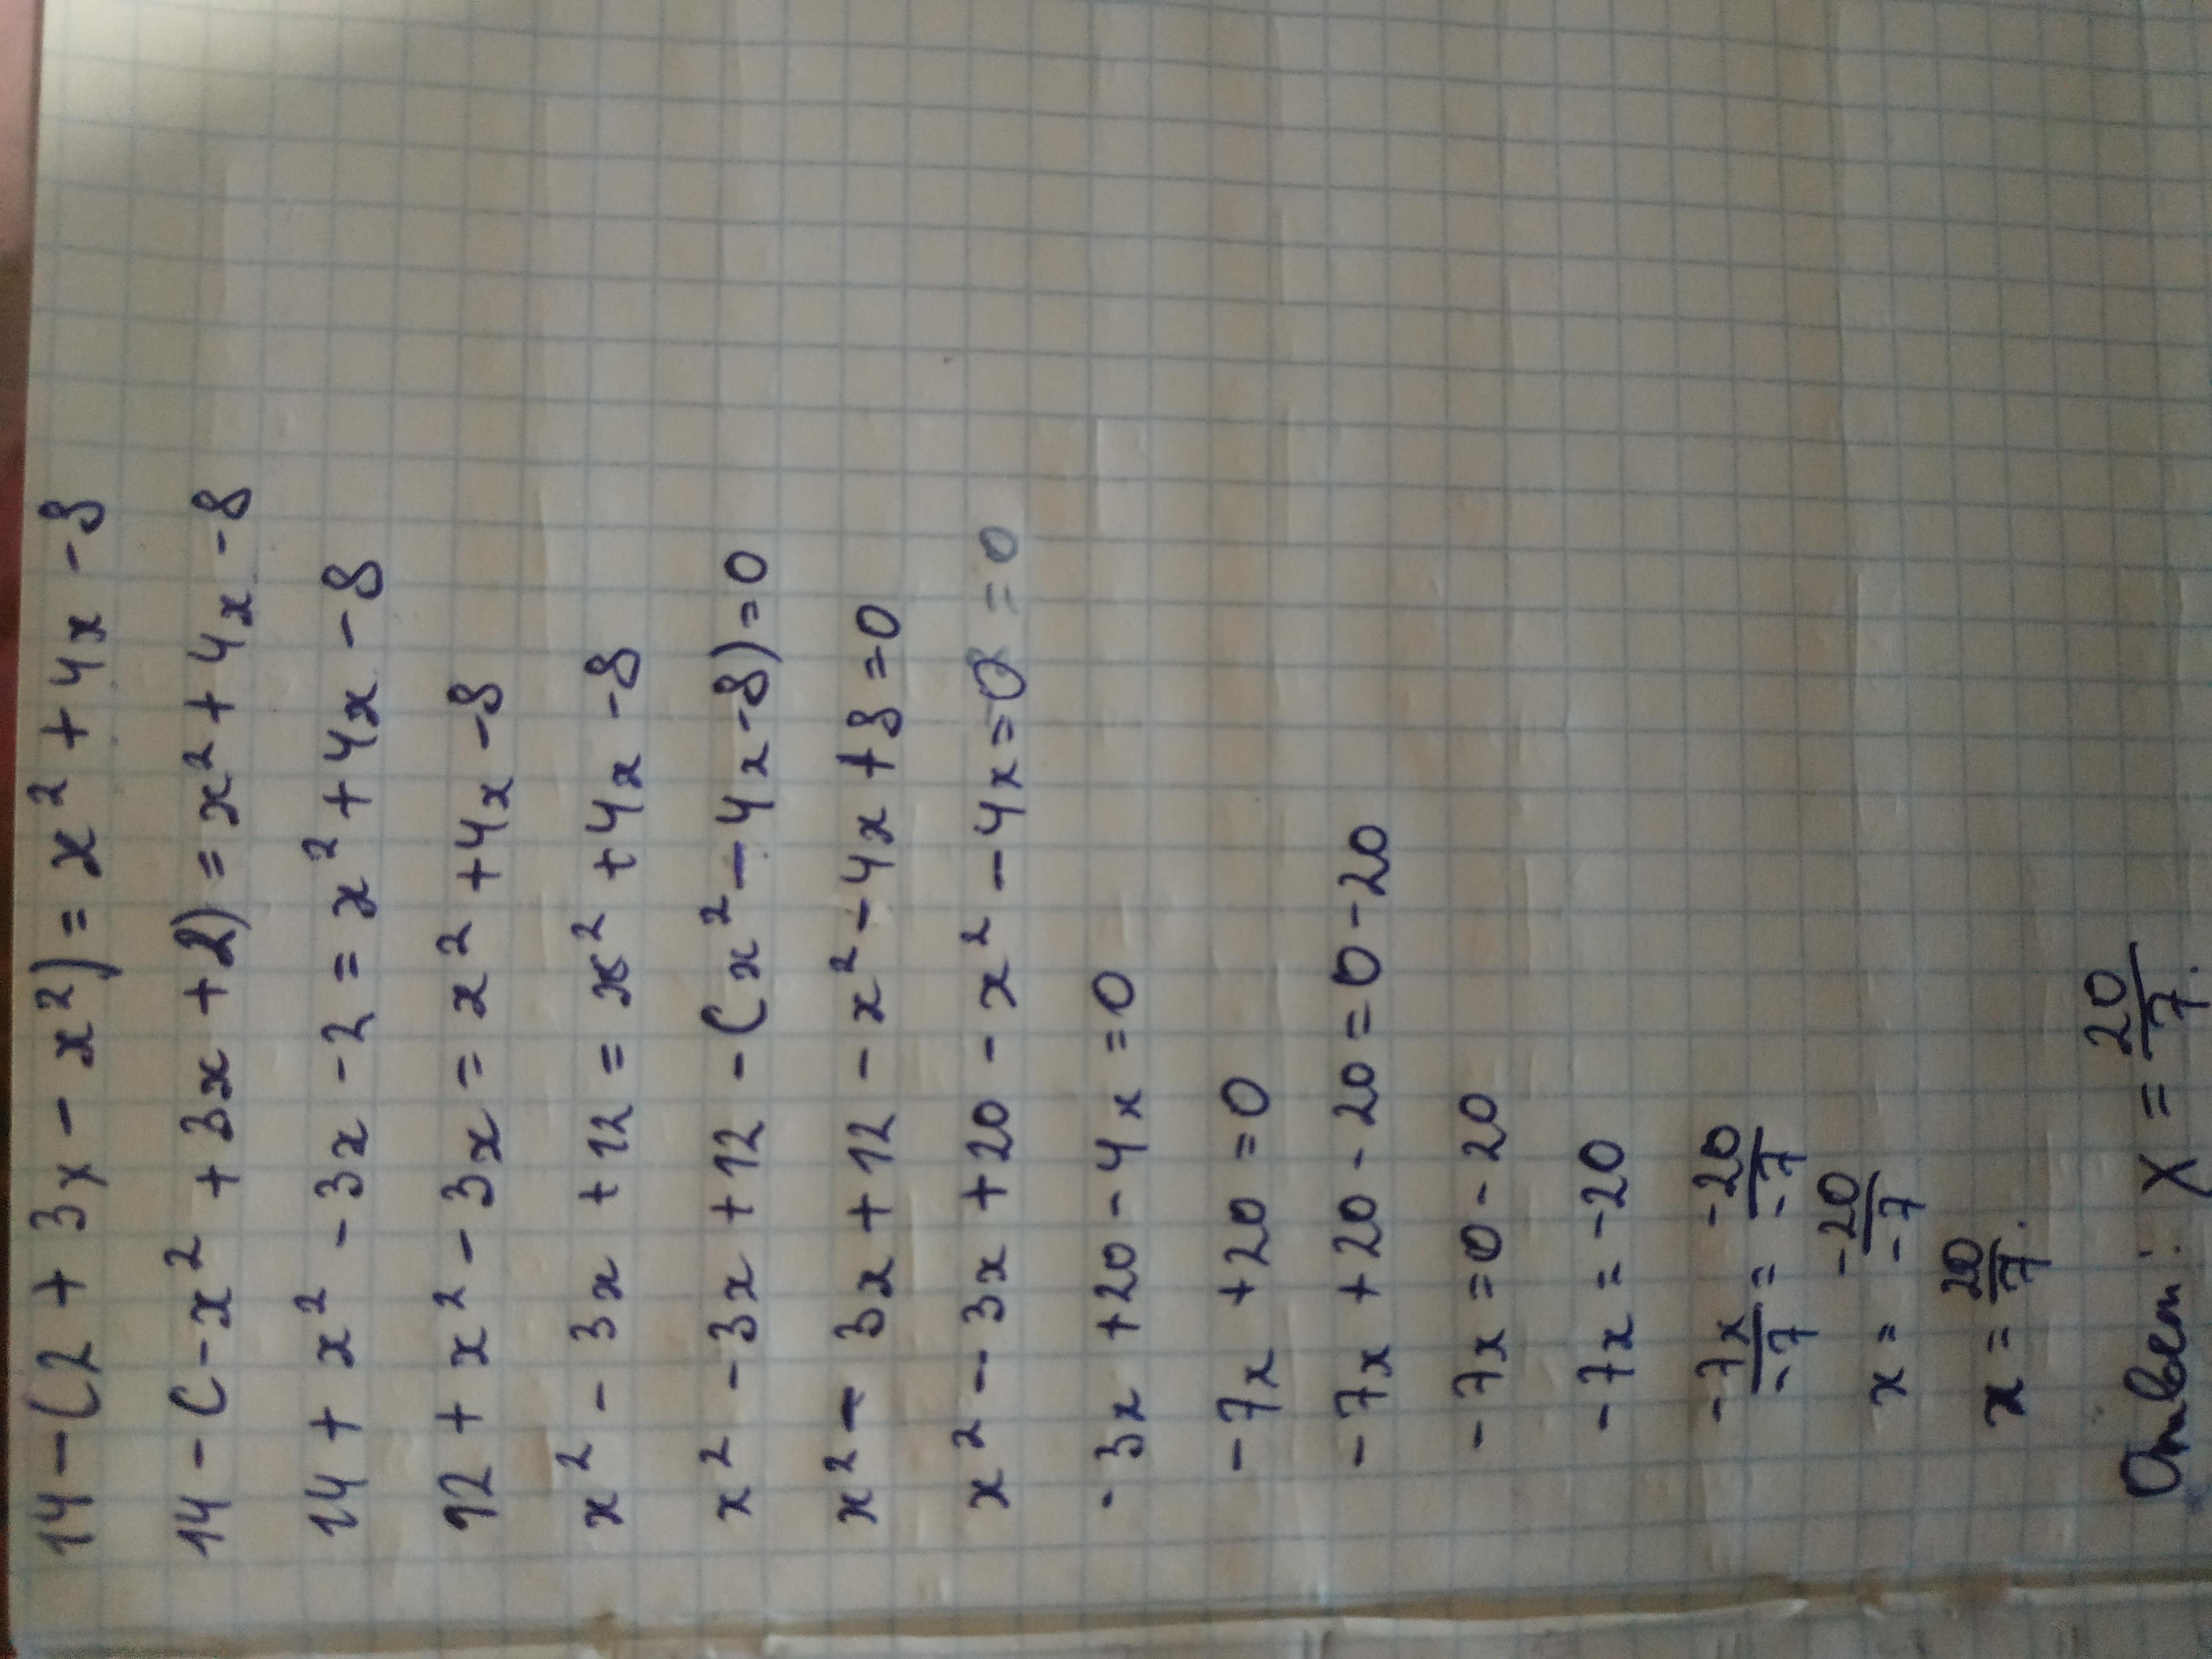 14-(2+3x-x²)=x²+4x-8
14-(-x²+3x+2)=x²+4x-8
14+x²-3x-2=x²+4x-8
12+x²-3x=x²+4x-8
x²-3x+12=x²+4x-8
x²-3x+12-(x²-4x-8)=0
x²-3x+12-x²-4x+8=0
x²-3x+20-x²-4x=0=0
-3x+20-4x=0
-7x+20=0
-7x+20-20=0-20
-7x=0-20
-7x=-20
-7x/-7=-20/-7
x=-20/-7
x=20/7.
Ответ: x=20/7.